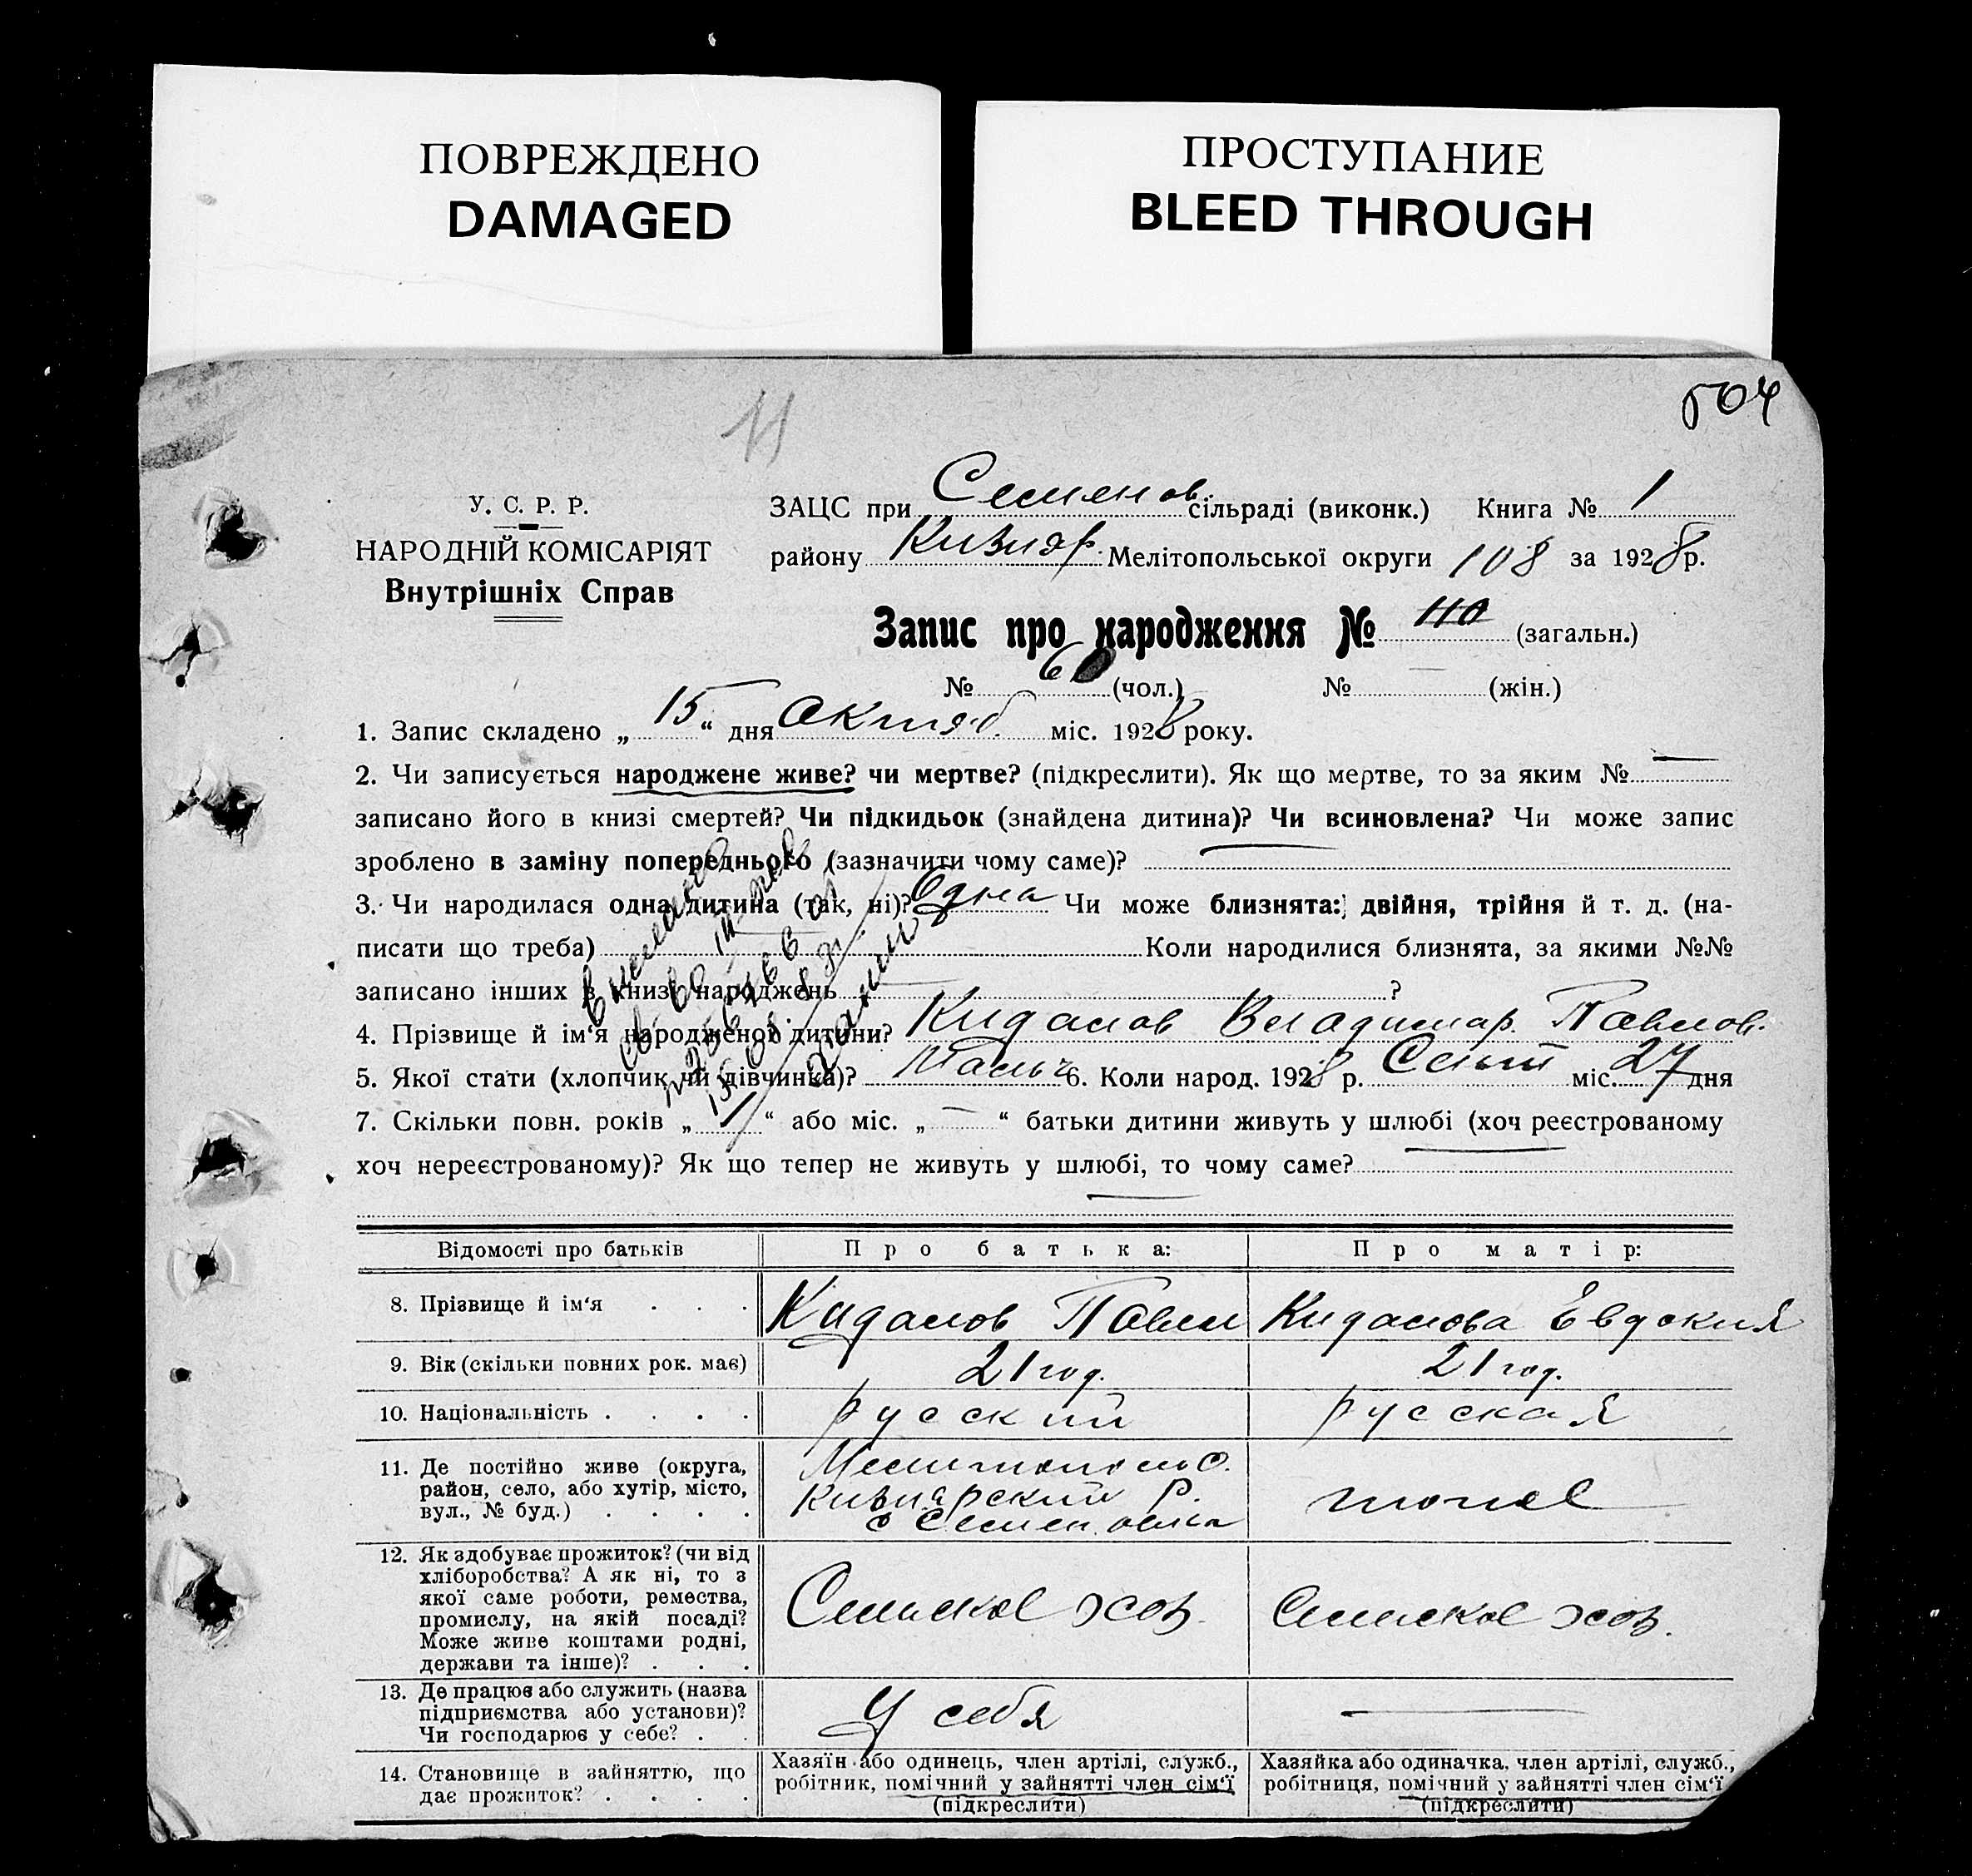 ПОВРЕЖДЕНО
DAMAGED
ПРОСТУПАНИЕ
BLEED THROUGH
504
11
У. С. Р. Р.
НАРОДНІЙ КОМІСАРІЯТ
Внутрішніх Справ
ЗАЦС при Семенов. сільраді (виконк.) Книга № 1
району Кизияр. Мелітопольської округи 108 за 1928 р.
Запис про народження № 110 (загальн.)
№ 60 (чол.) № — (жін.)
1. Запис складено „ 15 “ дня Октяб. міс. 1928 року.
2. Чи записується народжене живе? чи мертве? (підкреслити). Як що мертве, то за яким № —
записано його в книзі смертей? Чи підкидьок (знайдена дитина)? Чи всиновлена? Чи може запис
зроблено в заміну попереднього (зазначити чому саме)?
3. Чи народилася одна дитина (так, ні)? Одна Чи може близнята: двійня, трійня й т. д. (на-
писати що треба) Коли народилися близнята, за якими №№
записано інших в книзі народжень — ?
4. Прізвище й ім'я народженої дитини? Кидалов Владимир. Павлов.
5. Якої стати (хлопчик чи дівчинка)? Мальч 6. Коли народ. 1928 р. Сент міс. 27 дня
7. Скільки повн. років „ 1 “ або міс. „ — “ батьки дитини живуть у шлюбі (хоч реєстрованому
хоч нереєстрованому)? Як що тепер не живуть у шлюбі, то чому саме?
Відомості про батьків Про батька: Про матір:
8. Прізвище й ім'я Кидалов Павел Кидалова Евдокия
9. Вік (скільки повних рок. має) 21 год. 21 год.
10. Національність русский русская
11. Де постійно живе (округа,
район, село, або хутір, місто,
вул., № буд.)
Мелитополь О.
Кизиярский Р.
с Семеновка
тоже
12. Як здобуває прожиток? (чи від
хліборобства? А як ні, то з
якої саме роботи, ремества,
промислу, на якій посаді?
Може живе коштами родні,
держави та інше)?
Сельское хоз.
Сельское хоз.
13. Де працює або служить (назва
підприємства або установи)?
Чи господарює у себе?
У себя
—
14. Становище в зайняттю, що
дає прожиток?
Хазяїн або одинець, член артілі, служб.,
робітник, помічний у зайнятті член сім'ї
(підкреслити)
Хазяйка або одиначка, член артілі, служб.,
робітниця, помічний у зайнятті член сім'ї
(підкреслити)